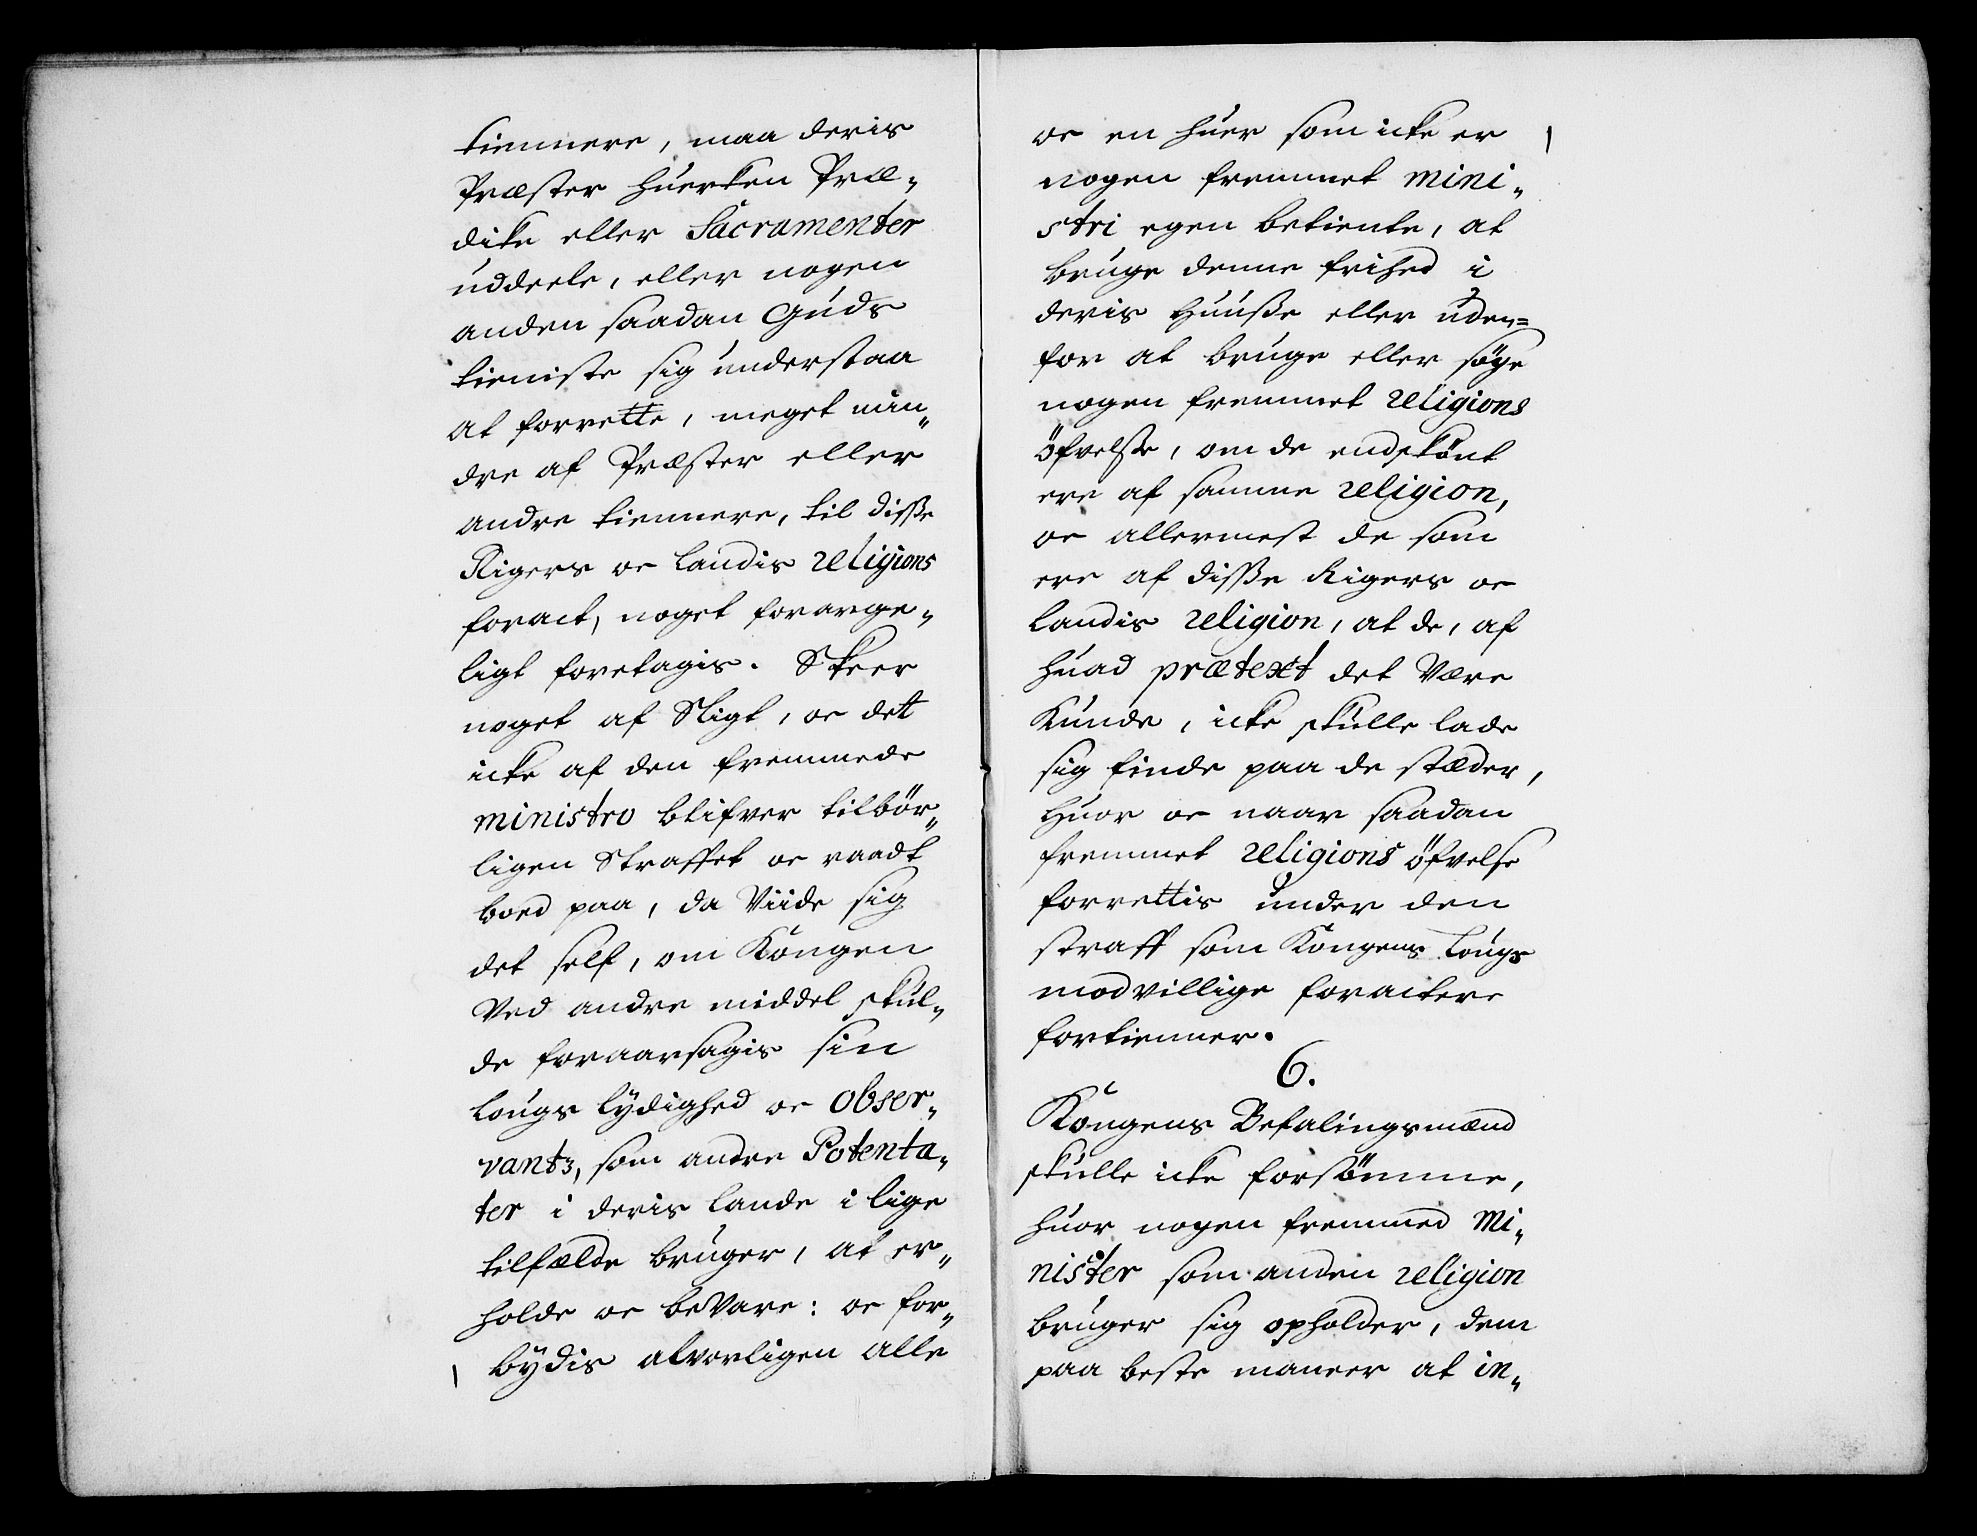 tiennere, maa deris
Præster huerken Præ„
dike eller Sacramenter
uddeele, eller nogen
anden saadan Guds
tieniste sig understaa
at forrette, meget min„
dre af Præster eller
andre tiennere, til disse
Rigers oc landis religions
foract, noget forarge„
ligt foretagis. Skeer
noget af Sligt, oc det
icke af den fremmede
ministro blifver tilbör„
ligen Straffet oc raadt
boed paa, da Viide sig
det self, om Kongen
Ved andre middel skul„
de foraarsagis sin
lougs lydighed oc obser„
vantz, som andre Potenta„
ter i deris lande i lige
tilfælde bruger, at er„
holde oc beVare: oc for„
bydis alvorligen alle
oc en huer som icke er
nogen fremmet mini„
stri egen betiente, at
bruge denne frihed i
deris Huuße eller uden=
for at bruge eller søge
nogen fremmet religions
öfvelse, om de endskönt
ere af samme religion,
oc allermest de som
ere af disse Rigers oc
landis religion, at de, af
huad prætext det Være
Kunde, icke skulle lade
sig finde paa de stæder,
Huor oc naar saadan
fremmet religions öfvelse
forrettis under den
straff som Kongens Lougs
modvillige foractere
fortienner.
6.
Kongens Befalingsmænd
skulle icke forsömme,
huor nogen fremmed Mi„
nister som anden religion
bruger sig opholder, dem
paa beste maneer at in„